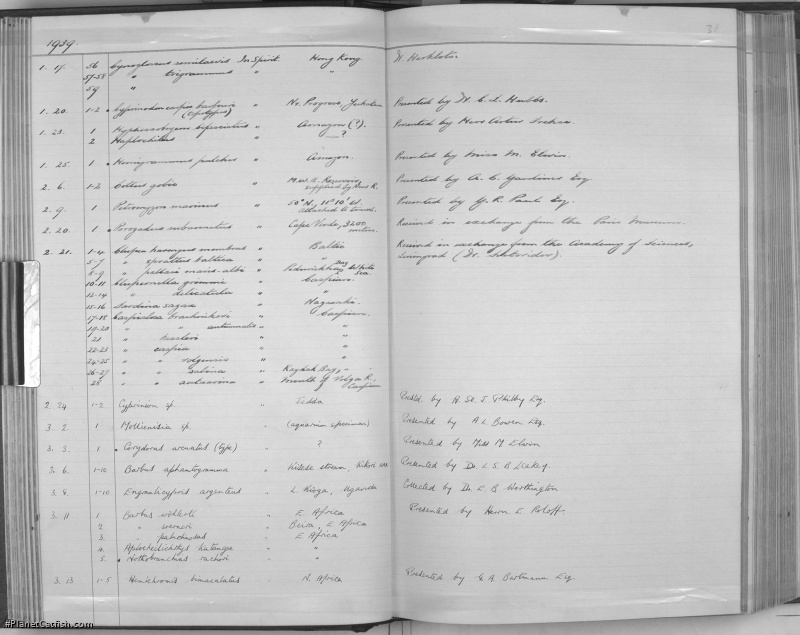 1939.
1. 17. 56 Cynoglossus semilaevis In Spirit Hong Kong W. Herklots.
57-58 " trigrammus " "
59 "
1. 20. 1-2 Cyprinodon " No. Progreso, Yucatan Presented by Dr. C. L. Hubbs.
(Cotypes)
1. 23. 1 Hyphessobrycon " Amazon (?). Presented by Herr Artur
2 Haplochilus " ?
1. 25. 1 Hemigrammus pulcher " Amazon. Presented by Miss M. Elwin.
2. 6. 1-2 Cottus gobio " M.W.B. Reservoir, Presented by A. C. Gardiner Esq.
supplied by R.
2. 9. 1 Petromyzon marinus " 50° N., 11° 10' W. Presented by Y. R. Paul Esq.
attached to
2. 20. 1 Porogadus subarmatus " Cape Verde, 3200 metres. Received in exchange from the Paris Museum.
2. 21. 1-4 Clupea harengus membras " Baltic Received in exchange from the Academy of Sciences,
5-7 " sprattus baltica " " Leningrad (Dr. Svetovidov).
8-9 " maris-albi " Bay White Sea
10-11 Clupeonella grimmi " Caspian.
12-14 " delicatula " "
15-16 Sardina sagax " Nagasaki.
17-18 Caspialosa brashnikovi " Caspian.
19-20 " " autumnalis " "
21 " kessleri " "
22-23 " caspia " "
24-25 " " volgensis " "
26-27 " " salina " Kaydak Bay, "
28 " " " Mouth of Volga R.,
Caspian
2. 24 1-2 Cyprinion sp. " Jedda Presd. by H. St. J Philby Esq.
3. 2. 1 Mollienisia sp. " (aquaria specimen) Presented by A L Bowen Esq.
3. 3. 1 Corydoras arcuatus (type) " ? Presented by Miss M Elwin
3. 6. 1-10 Barbus aphantogramma " stream, Presented by Dr. L S. B Leakey.
3. 8. 1-10 Engraulicypris argenteus " L. Kioga, Uganda Collected by Dr. E. B Worthington
3. 11 1 Barbus " E Africa Presented by Herrn E. Roloff.
2 " werneri " Beira, E Africa
3. " " E Africa
4. Aplocheilichthys katangae " "
5. Nothobranchius rachovi " "
3. 13 1-5 Hemichromis bimaculatus " N. Africa Presented by G A Bartmann Esq.
#PlanetCatfish.com